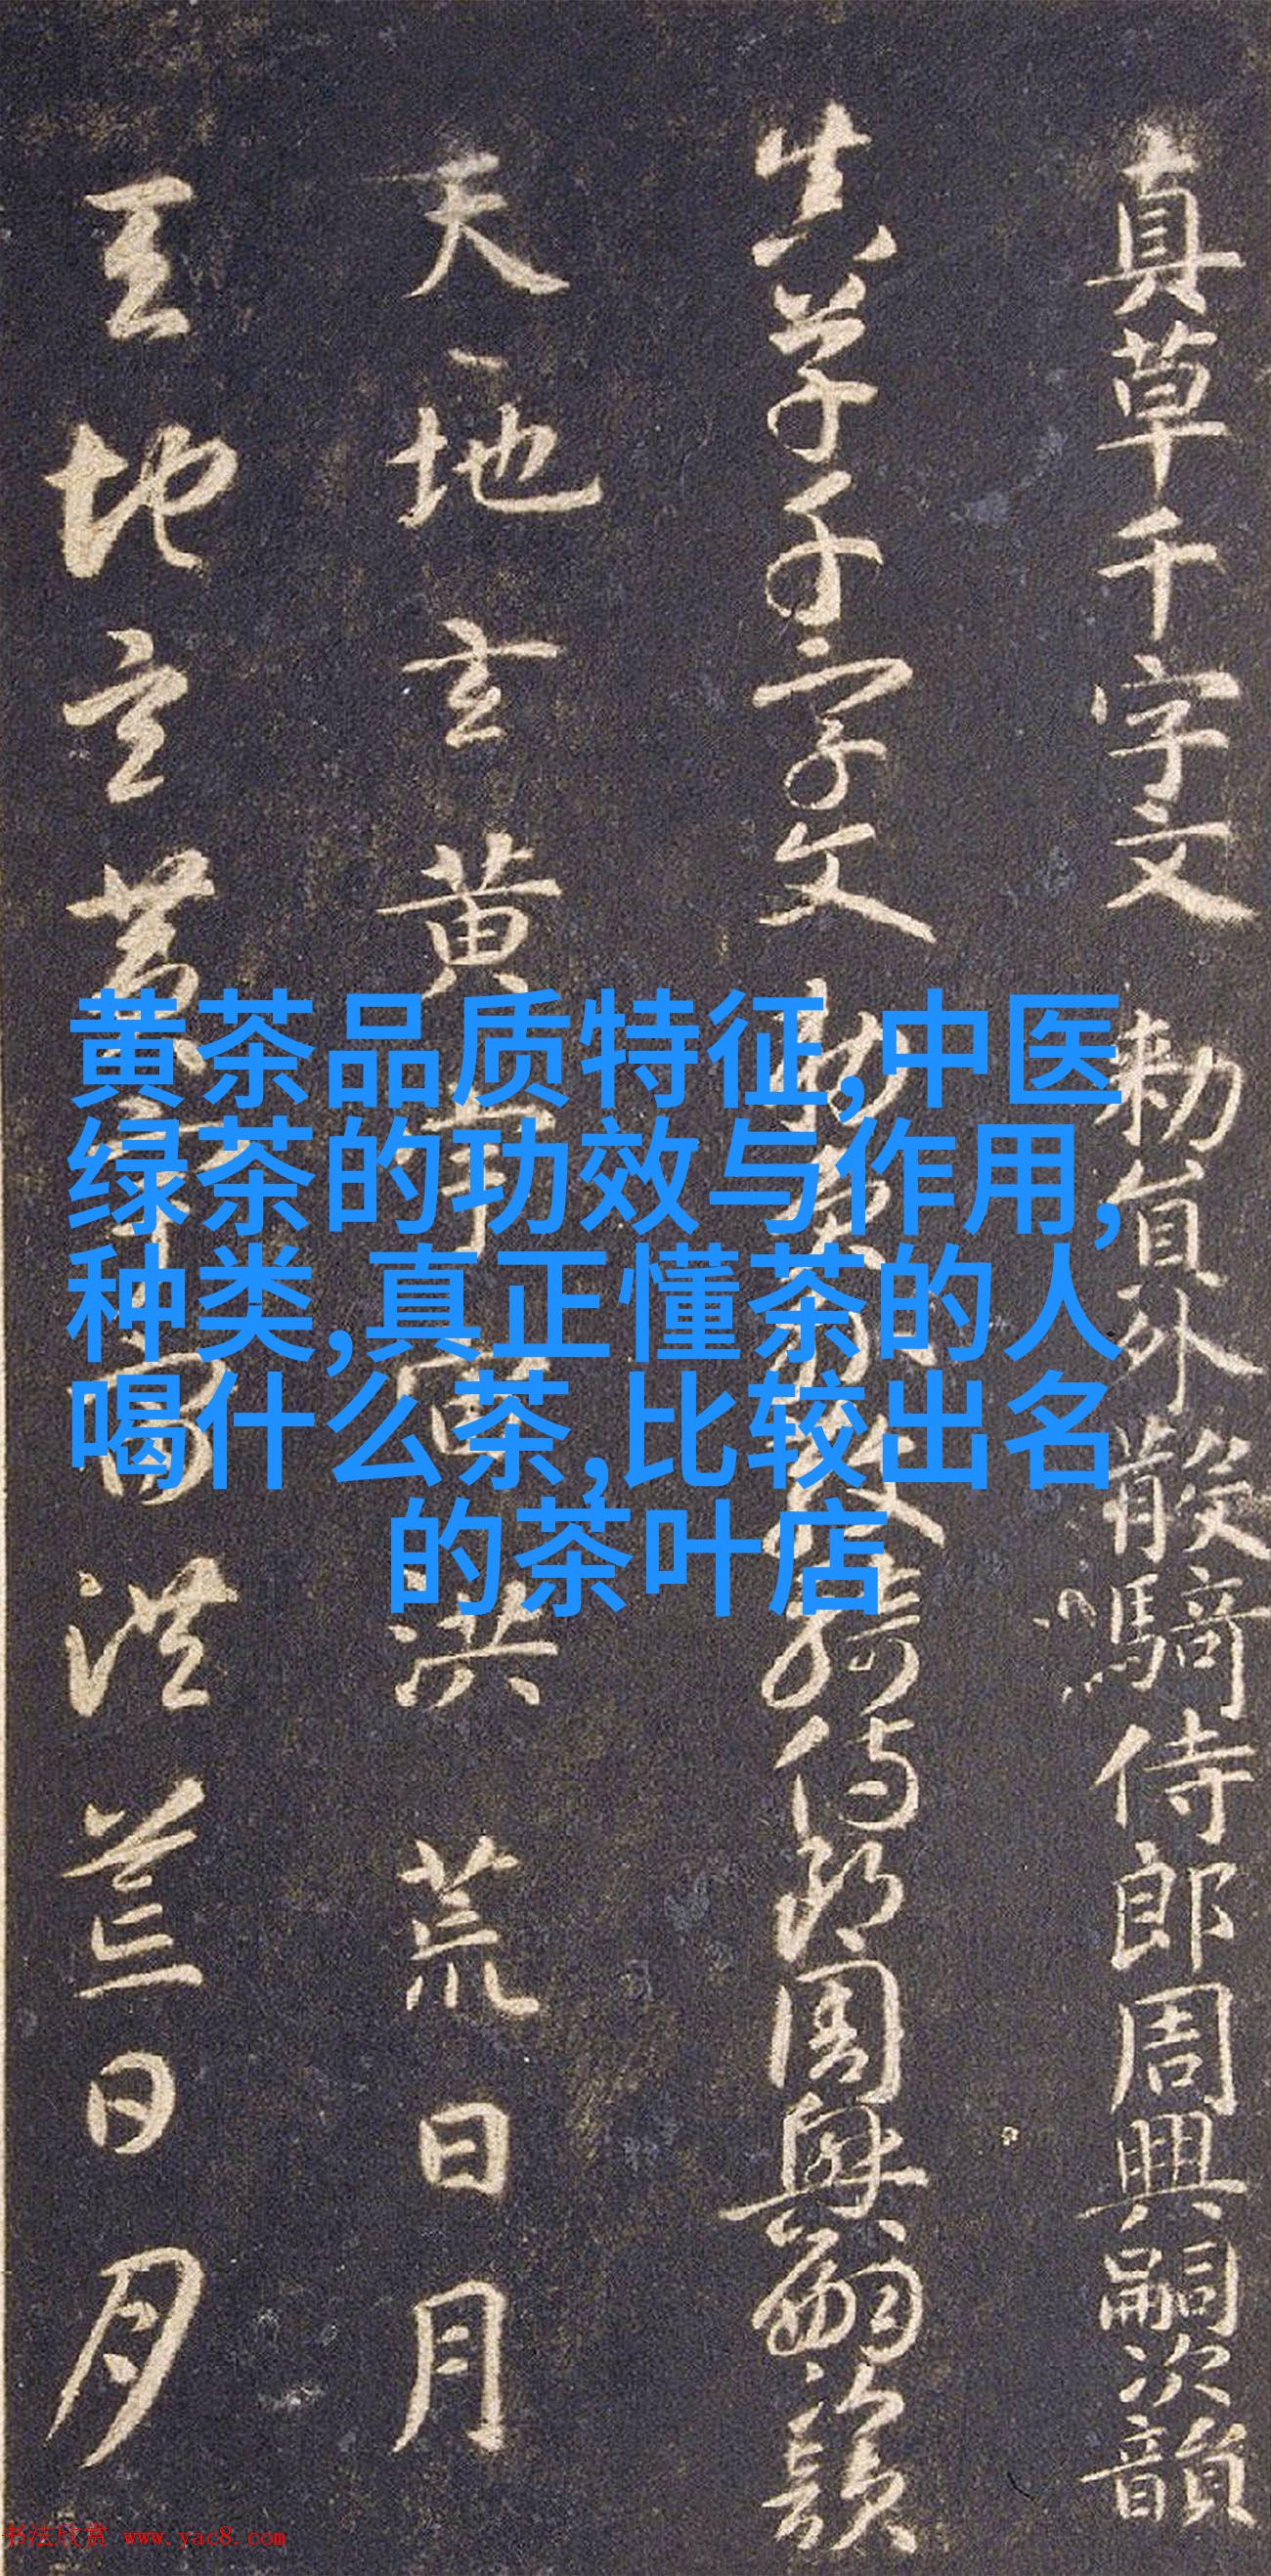 真草千字文 勅員外散騎侍郎周興嗣次韻
真草千字文 勅員外散騎侍郎周興嗣次韻
天地玄黄宇宙洪荒日月
天地玄黄宇宙洪荒日月
黄茶品质特征,中医
绿茶的功效与作用,
种类,真正懂茶的人
喝什么茶,比较出名
的茶叶店
书法欣赏 www.yac8.com